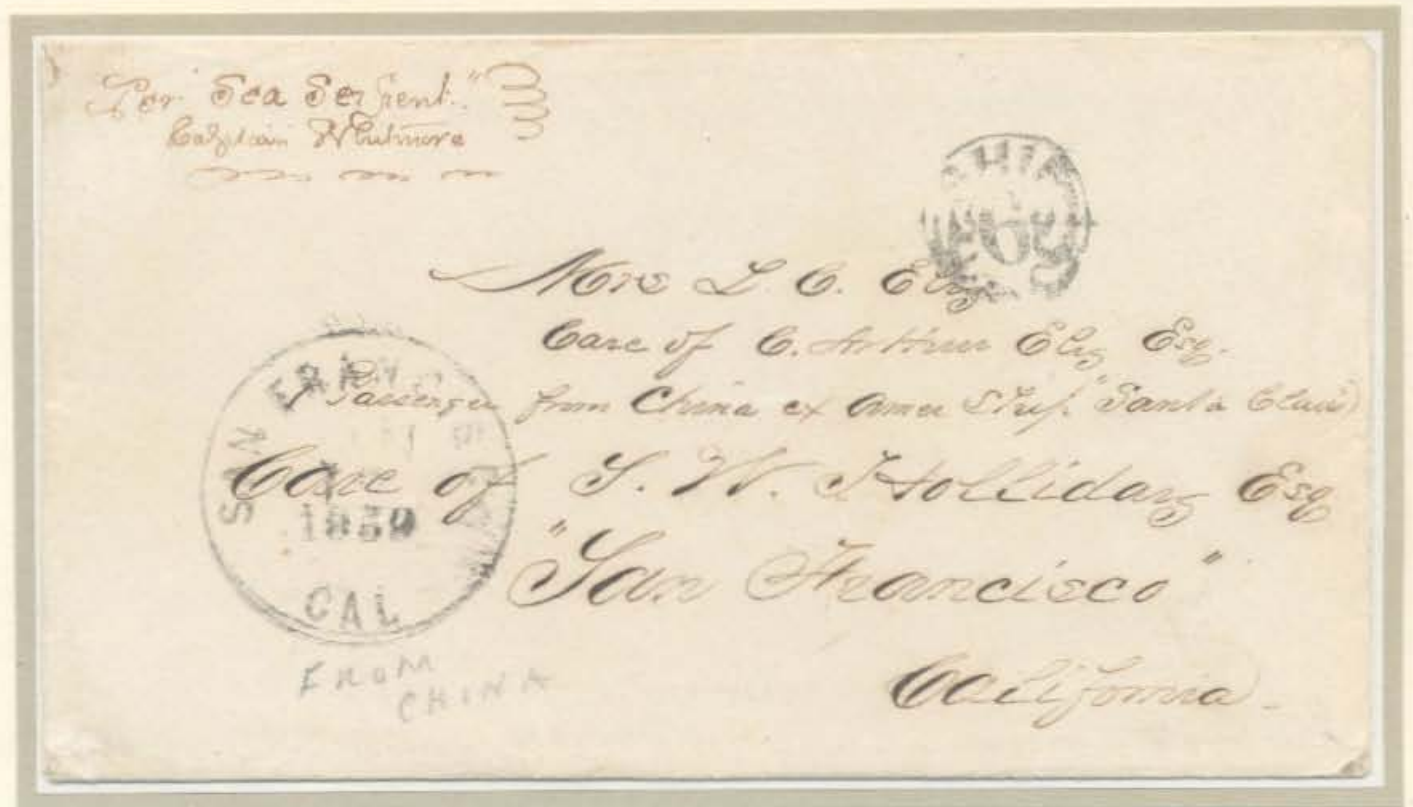 Per "Sea Serpent."
Captain Whitmore
SHIP
6
Mrs L C. Ely
Care of C. Arthur Ely Esq.
Passenger from China ex Amer Ship "Santa Claus)
Care of S. W. Holliday Esq
"San Francisco"
California.
SAN FRANCISCO
1859
CAL
FROM
CHINA